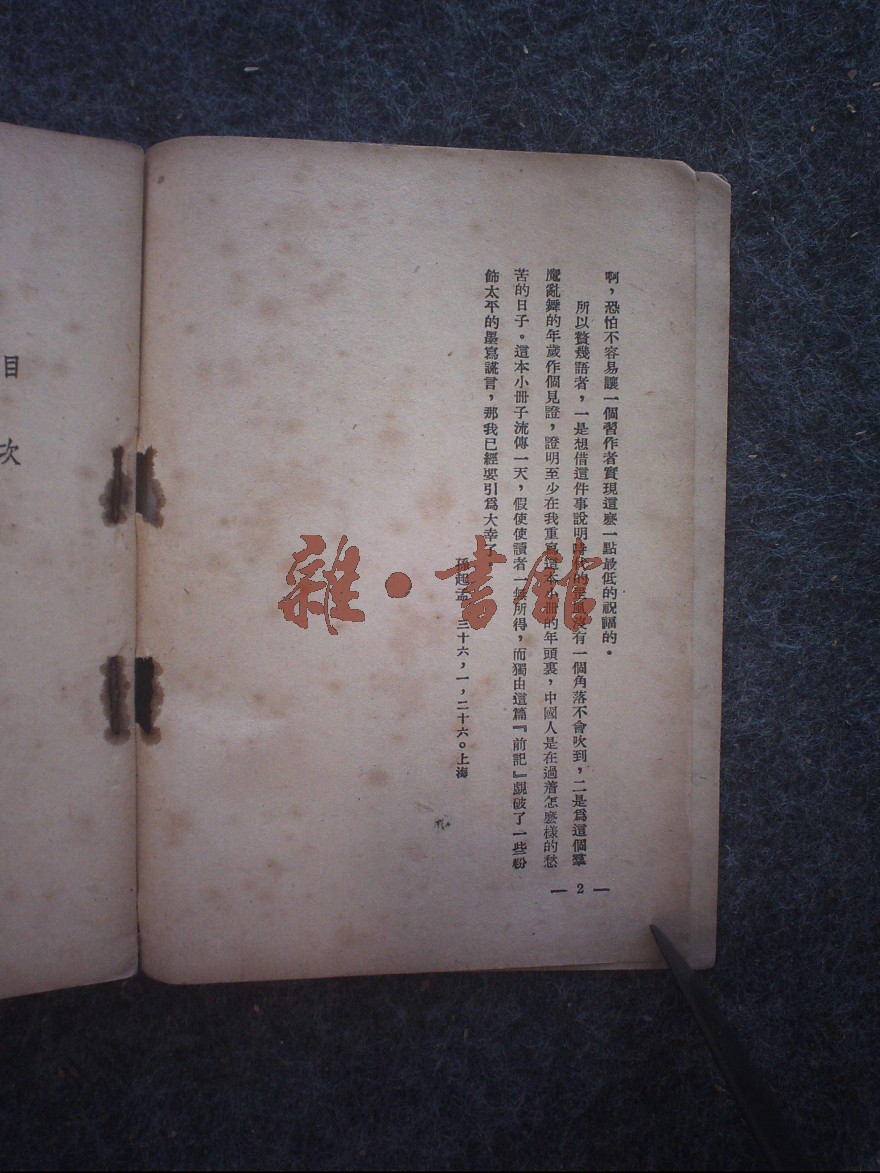 啊，恐怕不容易讓一個習作者實現這麽一點最低的祝福的。
所以贅幾語者，一是想借這件事說明時代的風沒有一個角落不會吹到，二是爲這個羣
魔亂舞的年歲作個見證，證明至少在我重寫這本小冊的年頭裏，中國人是在過着怎麽樣的愁
苦的日子。這本小冊子流傳一天，假使使讀者一無所得，而獨由這篇『前記』覷破了一些粉
飾太平的墨寫謊言，那我已經要引爲大幸了
孫起孟 三十六，一，二十六。上海
— 2 —
目 次
雜·書館